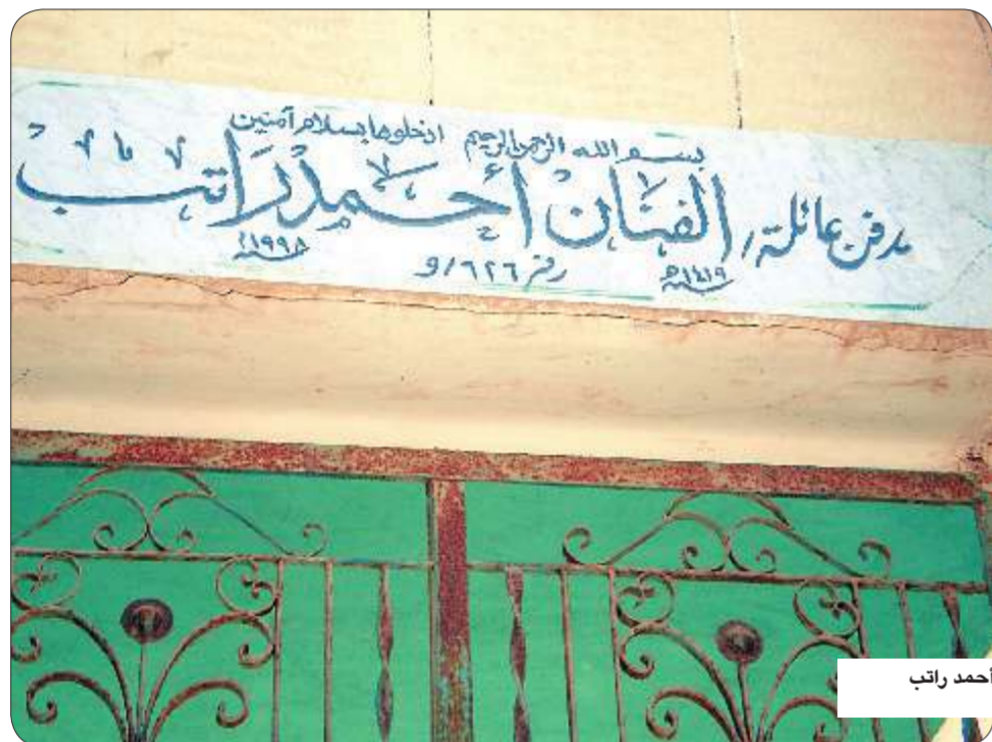 بسم الله الرحمن الرحيم ادخلوها بسلام آمنين
مدفن عائلة/ الفنان أحمد راتب
سنة ١٤١٩هـ رقم ٦٢٦/و سنة ١٩٩٨م
أحمد راتب